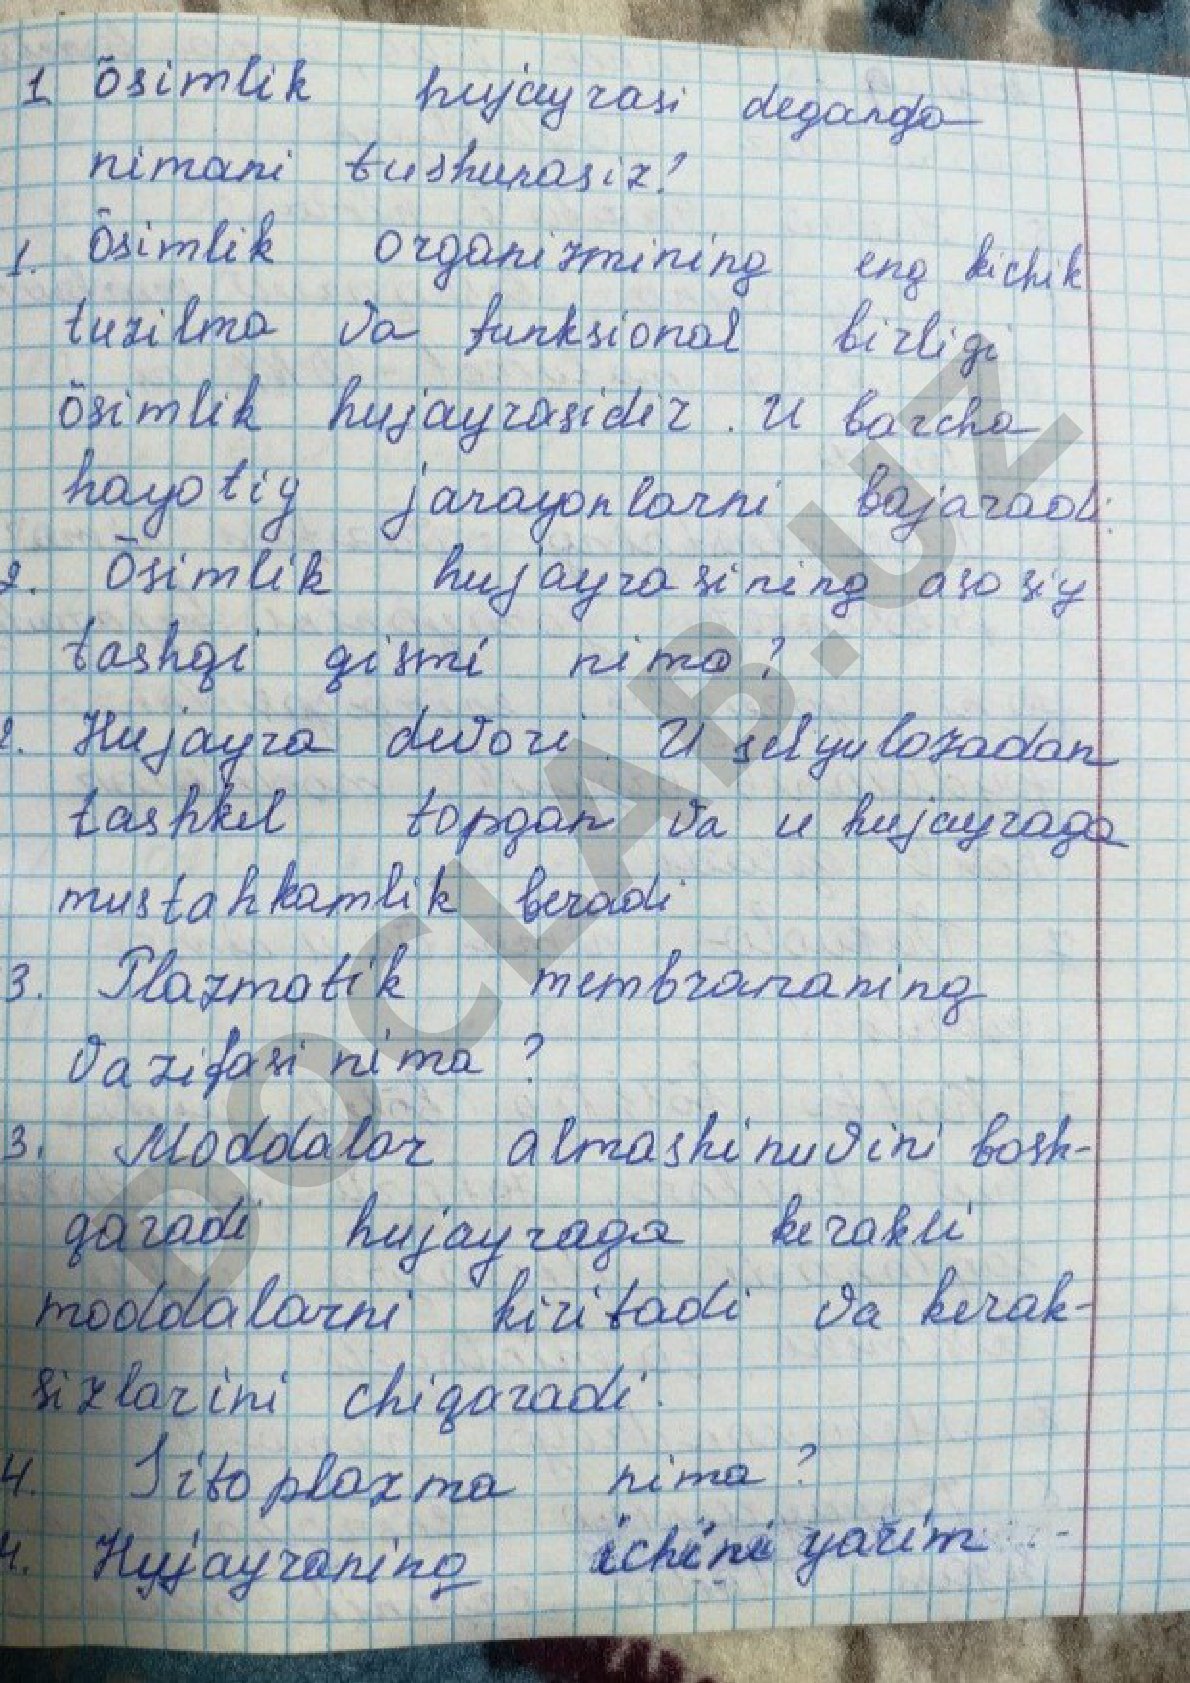 1 õsimlik hujayrasi deganda
nimani tushunasiz?
1. Õsimlik organizmining eng kichik
tuzilma va funksional birligi
õsimlik hujayrasidir. U barcha
hayotiy jarayonlarni bajaradi.
2. Õsimlik hujayrasining asosiy
tashqi qismi nima?
2. Hujayra devori. U selyulozadan
tashkil topgan va u hujayraga
mustahkamlik beradi
3. Plazmatik membrananing
vazifasi nima?
3. Moddalar almashinuvini bosh-
qaradi hujayraga kerakli
moddalarni kiritadi va kerak-
sizlarini chiqaradi.
4. Sitoplazma nima?
4. Hujayraning ichini yarim
DOCLAB.UZ